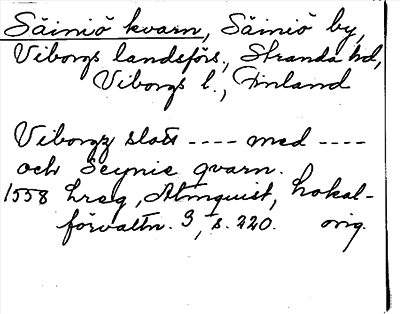 Säiniö kvarn, Säiniö by,
Viborgs landsförs., Stranda hd,
Viborgs l., Finland
Viborgz slott ---- med ----
och Seynie qvarn.
1558 hrag, Almquist, Lokal-
förvaltn. 3, s. 220. orig.